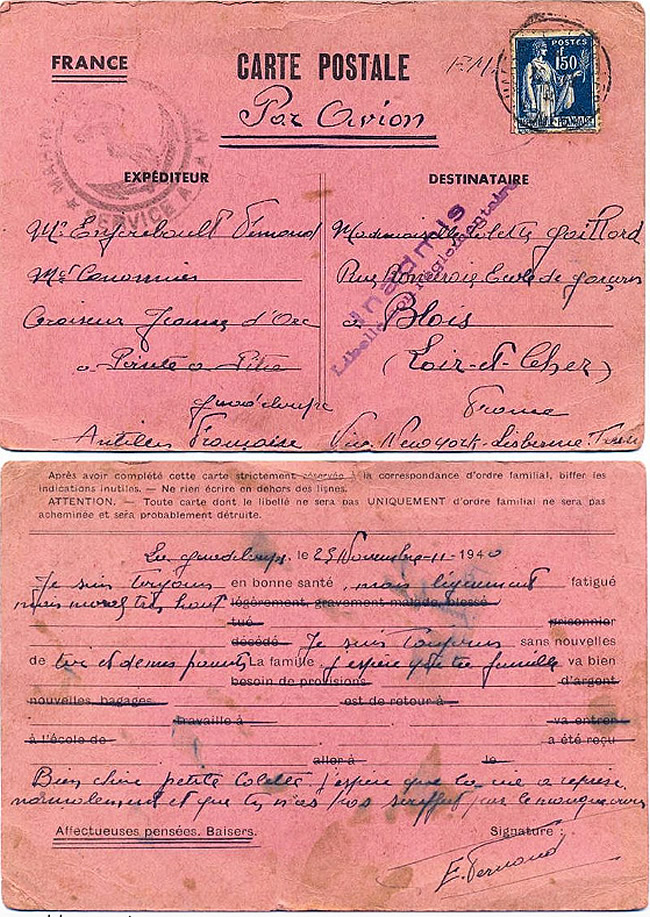 FRANCE
CARTE POSTALE
Par Avion
POSTES
1f50
EXPÉDITEUR
DESTINATAIRE
Mr Fernand
Mademoiselle Colette Gaillard
Mt Canonnier
Rue Ecole de garçons
Croiseur Jeanne d'Arc
à Blois
à Pointe à Pitre
(Loir-et-Cher)
Guadeloupe
France
Antilles Française
Via New york-Lisbonne-
Inadmis
Libellé réglementaire
Après avoir complété cette carte strictement réservée à la correspondance d'ordre familial, biffer les
indications inutiles. — Ne rien écrire en dehors des lignes.
ATTENTION. — Toute carte dont le libellé ne sera pas UNIQUEMENT d'ordre familial ne sera pas
acheminée et sera probablement détruite.
La guadeloupe, le 25 Novembre-11-1940
Je suis Toujours en bonne santé, mais légèrement fatigué
mais moral très haut légèrement, gravement malade, blessé
tué prisonnier
décédé Je suis Toujours sans nouvelles
de toi et de mes parents La famille j'espère que ta famille va bien
besoin de provisions d'argent
nouvelles bagages est de retour à
travaille à va entrer
à l'école de a été reçu
aller à le
Bien chère petite Colette j'espère que la vie a reprise
normalement et que tu n'as pas
Affectueuses pensées. Baisers.
Signature :
E. Fernand